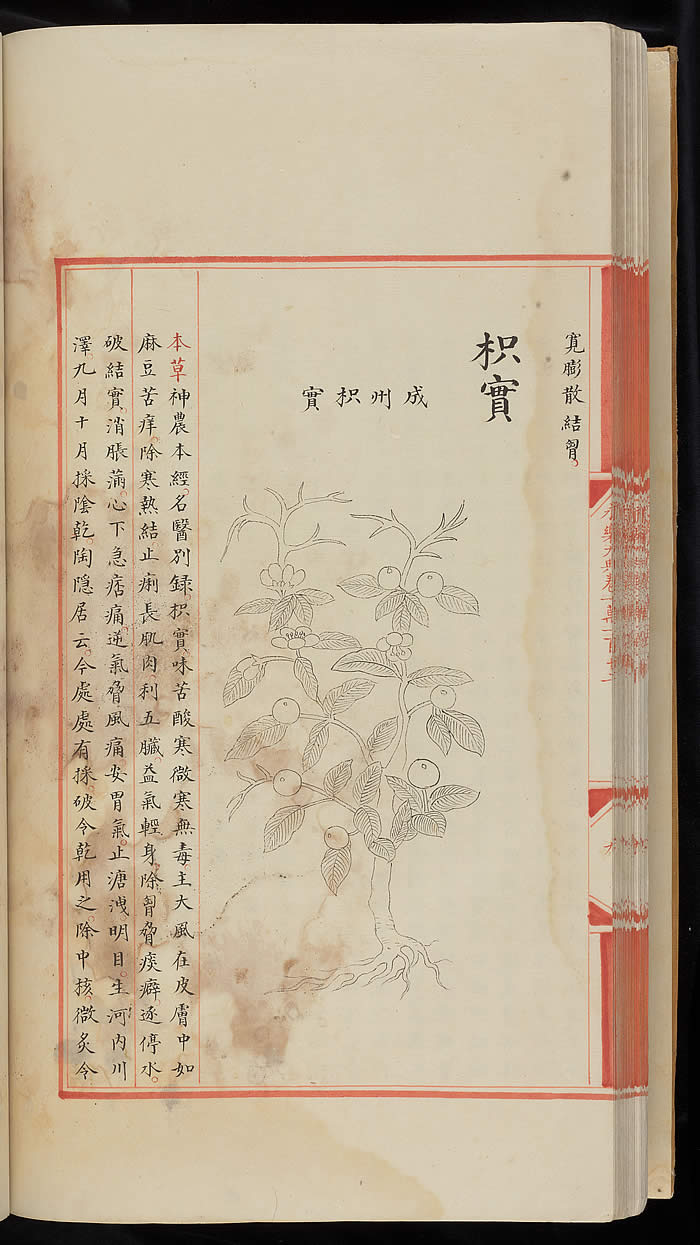 寬膨散結胷。
枳實
成州枳實
本草神農本經。名醫別録。枳實。味苦酸寒微寒無毒。主大風在皮膚中如
麻豆苦痒。除寒熱結。止痢。長肌肉。利五臟。益氣輕身。除胷脅痰癖。逐停水。
破結實。消脹滿。心下急痞痛。逆氣脅風痛。安胃氣。止溏洩。明目。生河內川
澤。九月十月採陰乾。陶隠居云。今處處有。採破令乾用之。除中核。微炙令